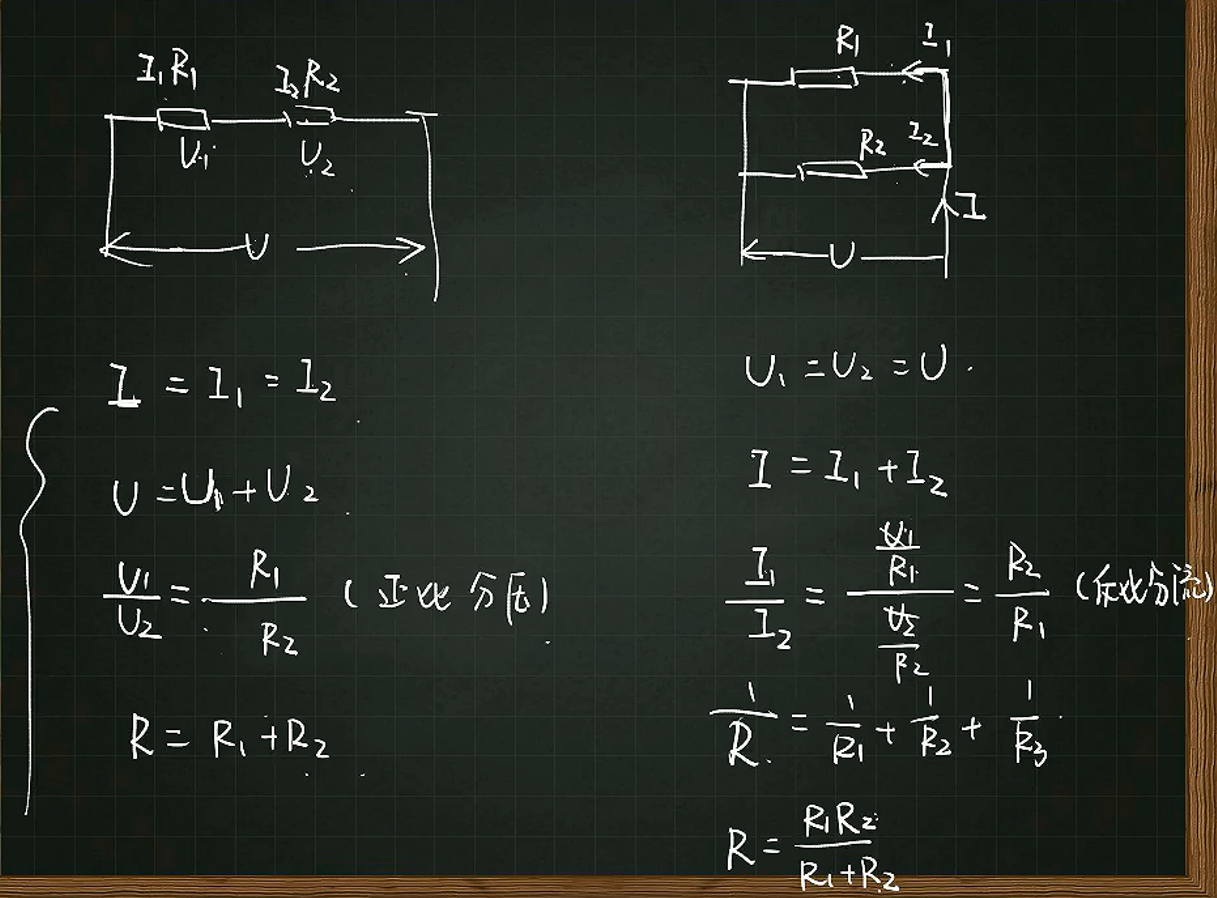 I₁R₁ I₂R₂
U₁ U₂
U
I = I₁ = I₂
U = U₁ + U₂
U₁/U₂ = R₁/R₂ (正比分压)
R = R₁ + R₂
R₁ I₁
R₂ I₂
I
U
U₁ = U₂ = U.
I = I₁ + I₂
I₁/I₂ = (U₁/R₁)/(U₂/R₂) = R₂/R₁ (反比分流)
1/R = 1/R₁ + 1/R₂ + 1/R₃
R = R₁R₂/(R₁+R₂)